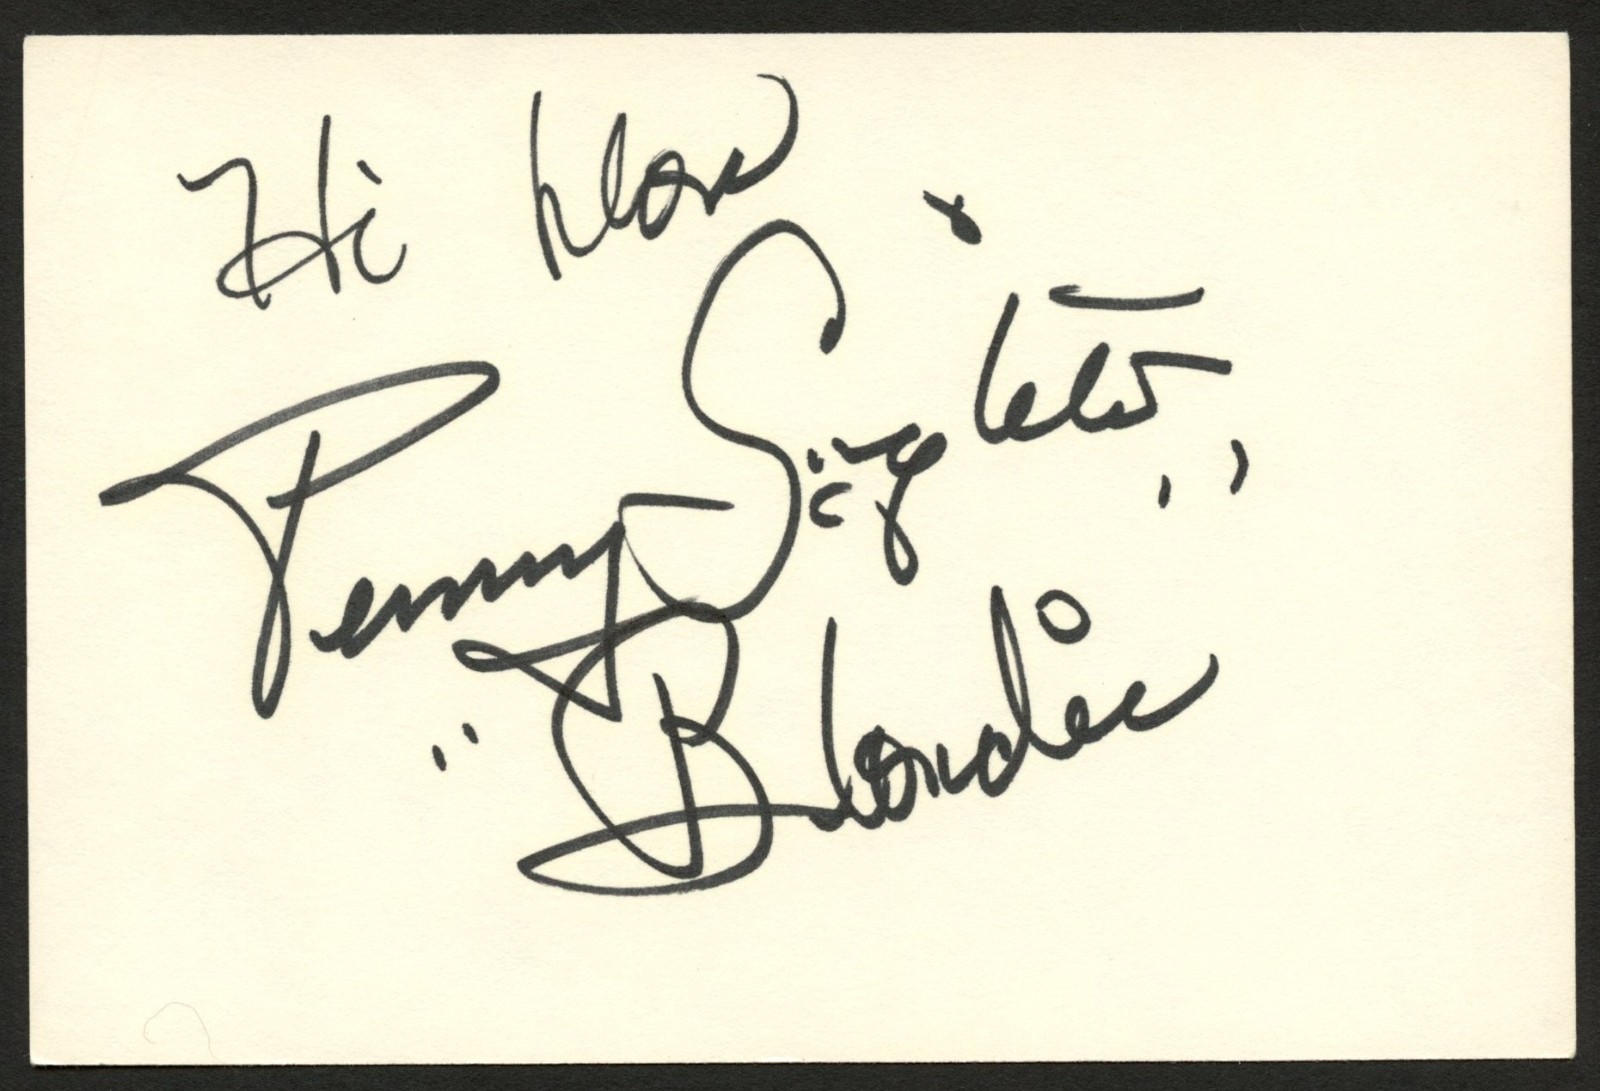 Hi
Penny Singleton
"Blondie"